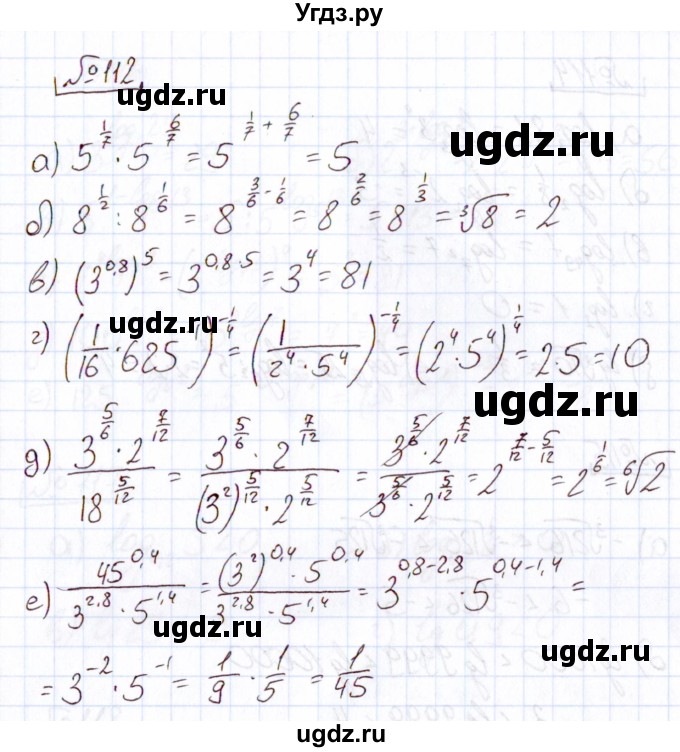 Угдз.ру
№112
ugdz.ru
ugdz.ru
а) 5^(1/7) · 5^(6/7) = 5^(1/7 + 6/7) = 5
б) 8^(1/2) : 8^(1/6) = 8^(3/6 - 1/6) = 8^(2/6) = 8^(1/3) = ∛8 = 2
в) (3^0,8)^5 = 3^(0,8·5) = 3^4 = 81
ugdz.ru
г) (1/16 · 625^(-1))^(-1/4) = (1/(2^4 · 5^4))^(-1/4) = (2^4 · 5^4)^(1/4) = 2·5 = 10
ugdz.ru
ugdz.ru
д) (3^(5/6) · 2^(7/12))/(18^(5/12)) = (3^(5/6) · 2^(7/12))/((3^2)^(5/12) · 2^(5/12)) = (3^(5/6) · 2^(7/12))/(3^(5/6) · 2^(5/12)) = 2^(7/12 - 5/12) = 2^(1/6) = ⁶√2
е) 45^0,4/(3^2,8 · 5^1,4) = ((3^2)^0,4 · 5^0,4)/(3^2,8 · 5^1,4) = 3^(0,8-2,8) · 5^(0,4-1,4) =
ugdz.ru
ugdz.ru
= 3^(-2) · 5^(-1) = 1/9 · 1/5 = 1/45
ugdz.ru
ugdz.ru
Угдз.ру